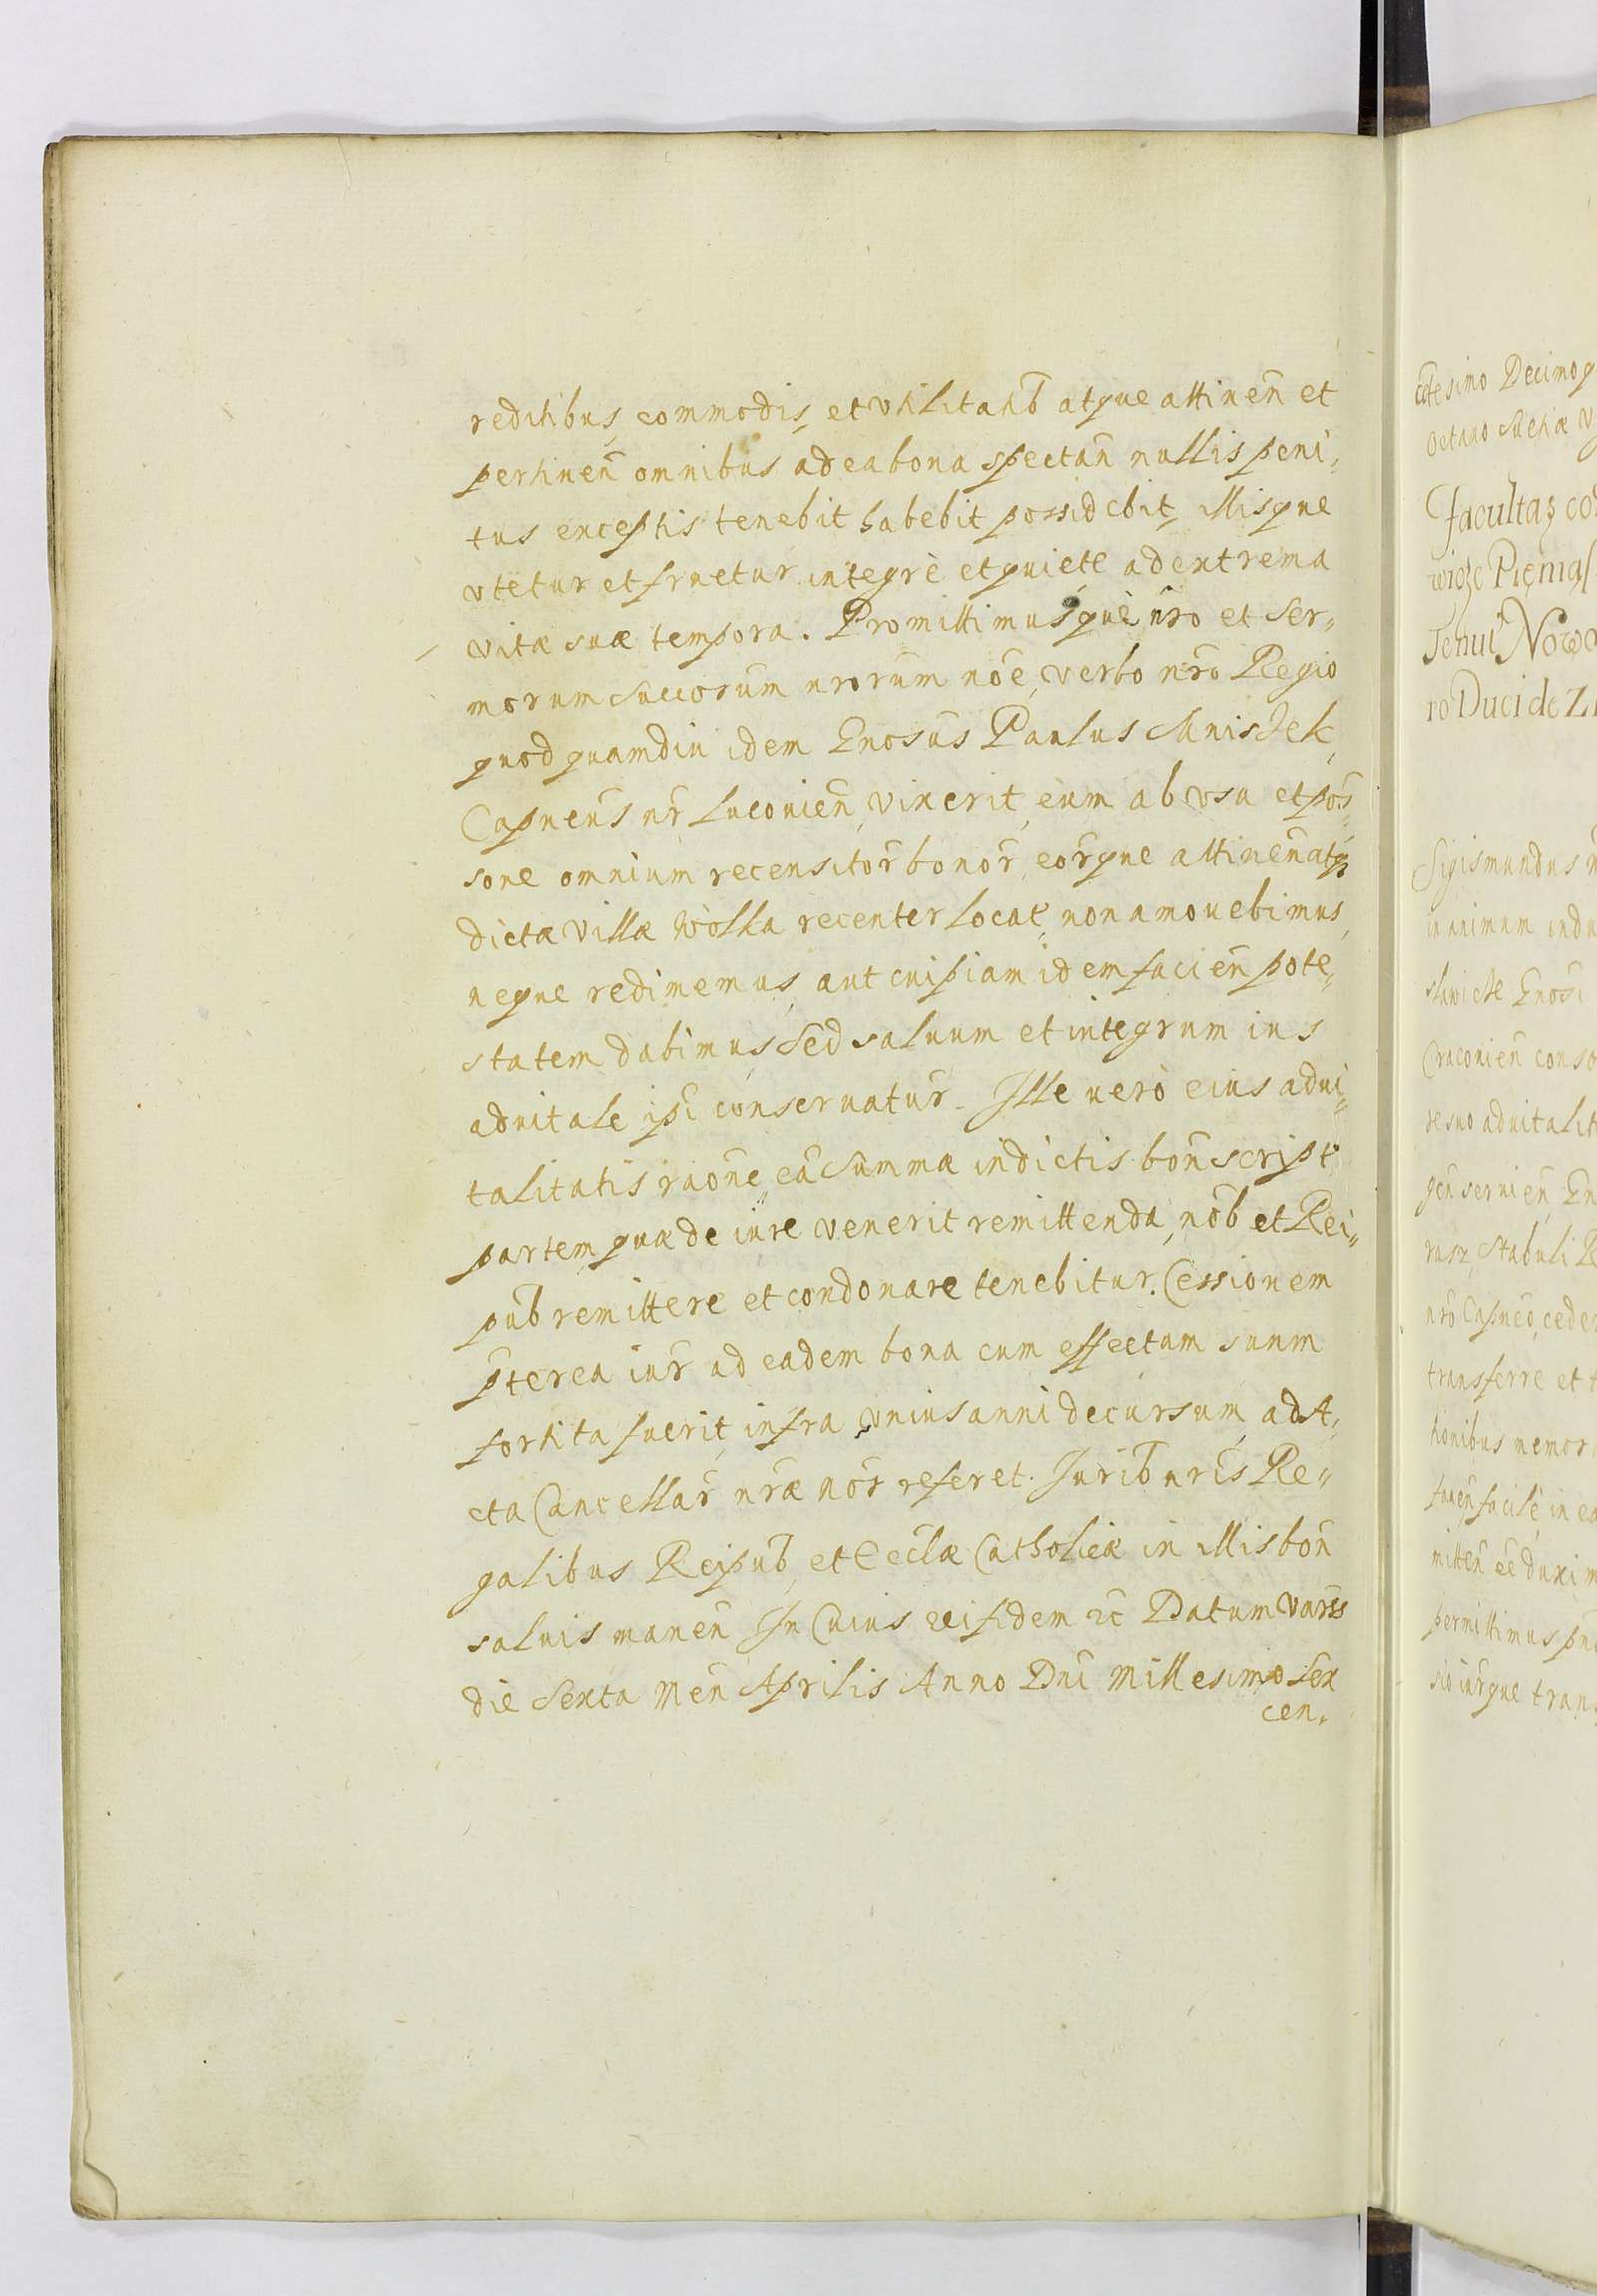 reditibus, commodis, et vtilitatib̄ atque attineñ et
pertineñ omnibus ad ea bona spectañ nullis peni„
tus exceptis tenebit habebit possidebit, illisque
vtetur et fruetur integrè et quiete ad extrema
vitæ suæ tempora. Promittimusquè nr̄o et Ser„
morum Succorum nrorum nōe, verbo nr̄o Regio
quod quamdiu idem Gnosus Paulus Mniszek
Capneus nr̄ Luconieñ, vixerit, eum ab vsu et pos̄„
sone omnium recensitor̄ bonor̄, eor̄que attineñ atq3
dictæ Villæ Wolka recenter locat, non amouebimus,
neque redimemus, aut cuipiam idem facieñ pote„
statem dabimus, Sed saluum et integrum ius
aduitale ipi conseruatur. Ille uerò eius adui„
talitatis raōne, eā Summæ in dictis boñ script
partem, quæ de iure venerit remittenda, nob̄ et Rei„
pub̄ remittere et condonare tenebitur. Cessionem
p̄terea iur̄ ad eadem bona cum effectum suum
sortita fuerit, infra vnius anni decursum, ad A„
cta Cancellar̄ nr̄æ nōr referet. Jurib nr̄is Re„
galibus Reipub̄, et Eccl̄æ Catholicæ in illis boñ
saluis maneñ In Cuius rei fidem zc̄ Datum Vars
die Sexta Meñ Aprilis Anno Dnī Millesimo Sex
cen.
ctesimo Decimo
Octauo
Facultas
wicze
Nowo
ro Duci de
Sigismundus
in animum
Craconieñ
tesuo aduitalit
Stabuli
nrō Capneo, ceder
transferre et
tionibus memor
faueñ facilè, in ea
mitteñ eē
permittimus